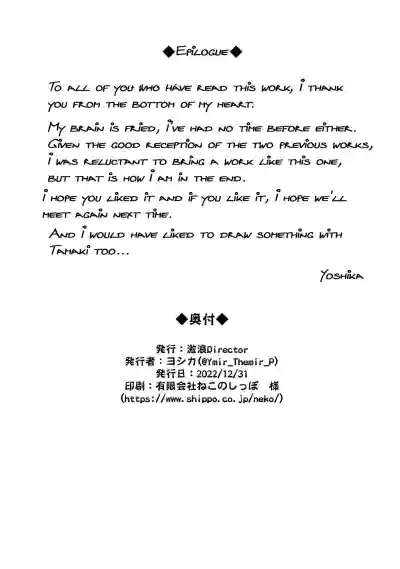 ◆Epilogue◆
To all of you who have read this work, I thank
you from the bottom of my heart.
My brain is fried, I've had no time before either.
Given the good reception of the two previous works,
I was reluctant to bring a work like this one,
but that is how I am in the end.
I hope you liked it and if you like it, I hope we'll
meet again next time.
And I would have liked to draw something with
Tamaki too...
Yoshika
◆奥付◆
発行：激浪Director
発行者：ヨシカ(@Ymir_Themir_P)
発行日：2022/12/31
印刷：有限会社ねこのしっぽ 様
(https://www.shippo.co.jp/neko/)